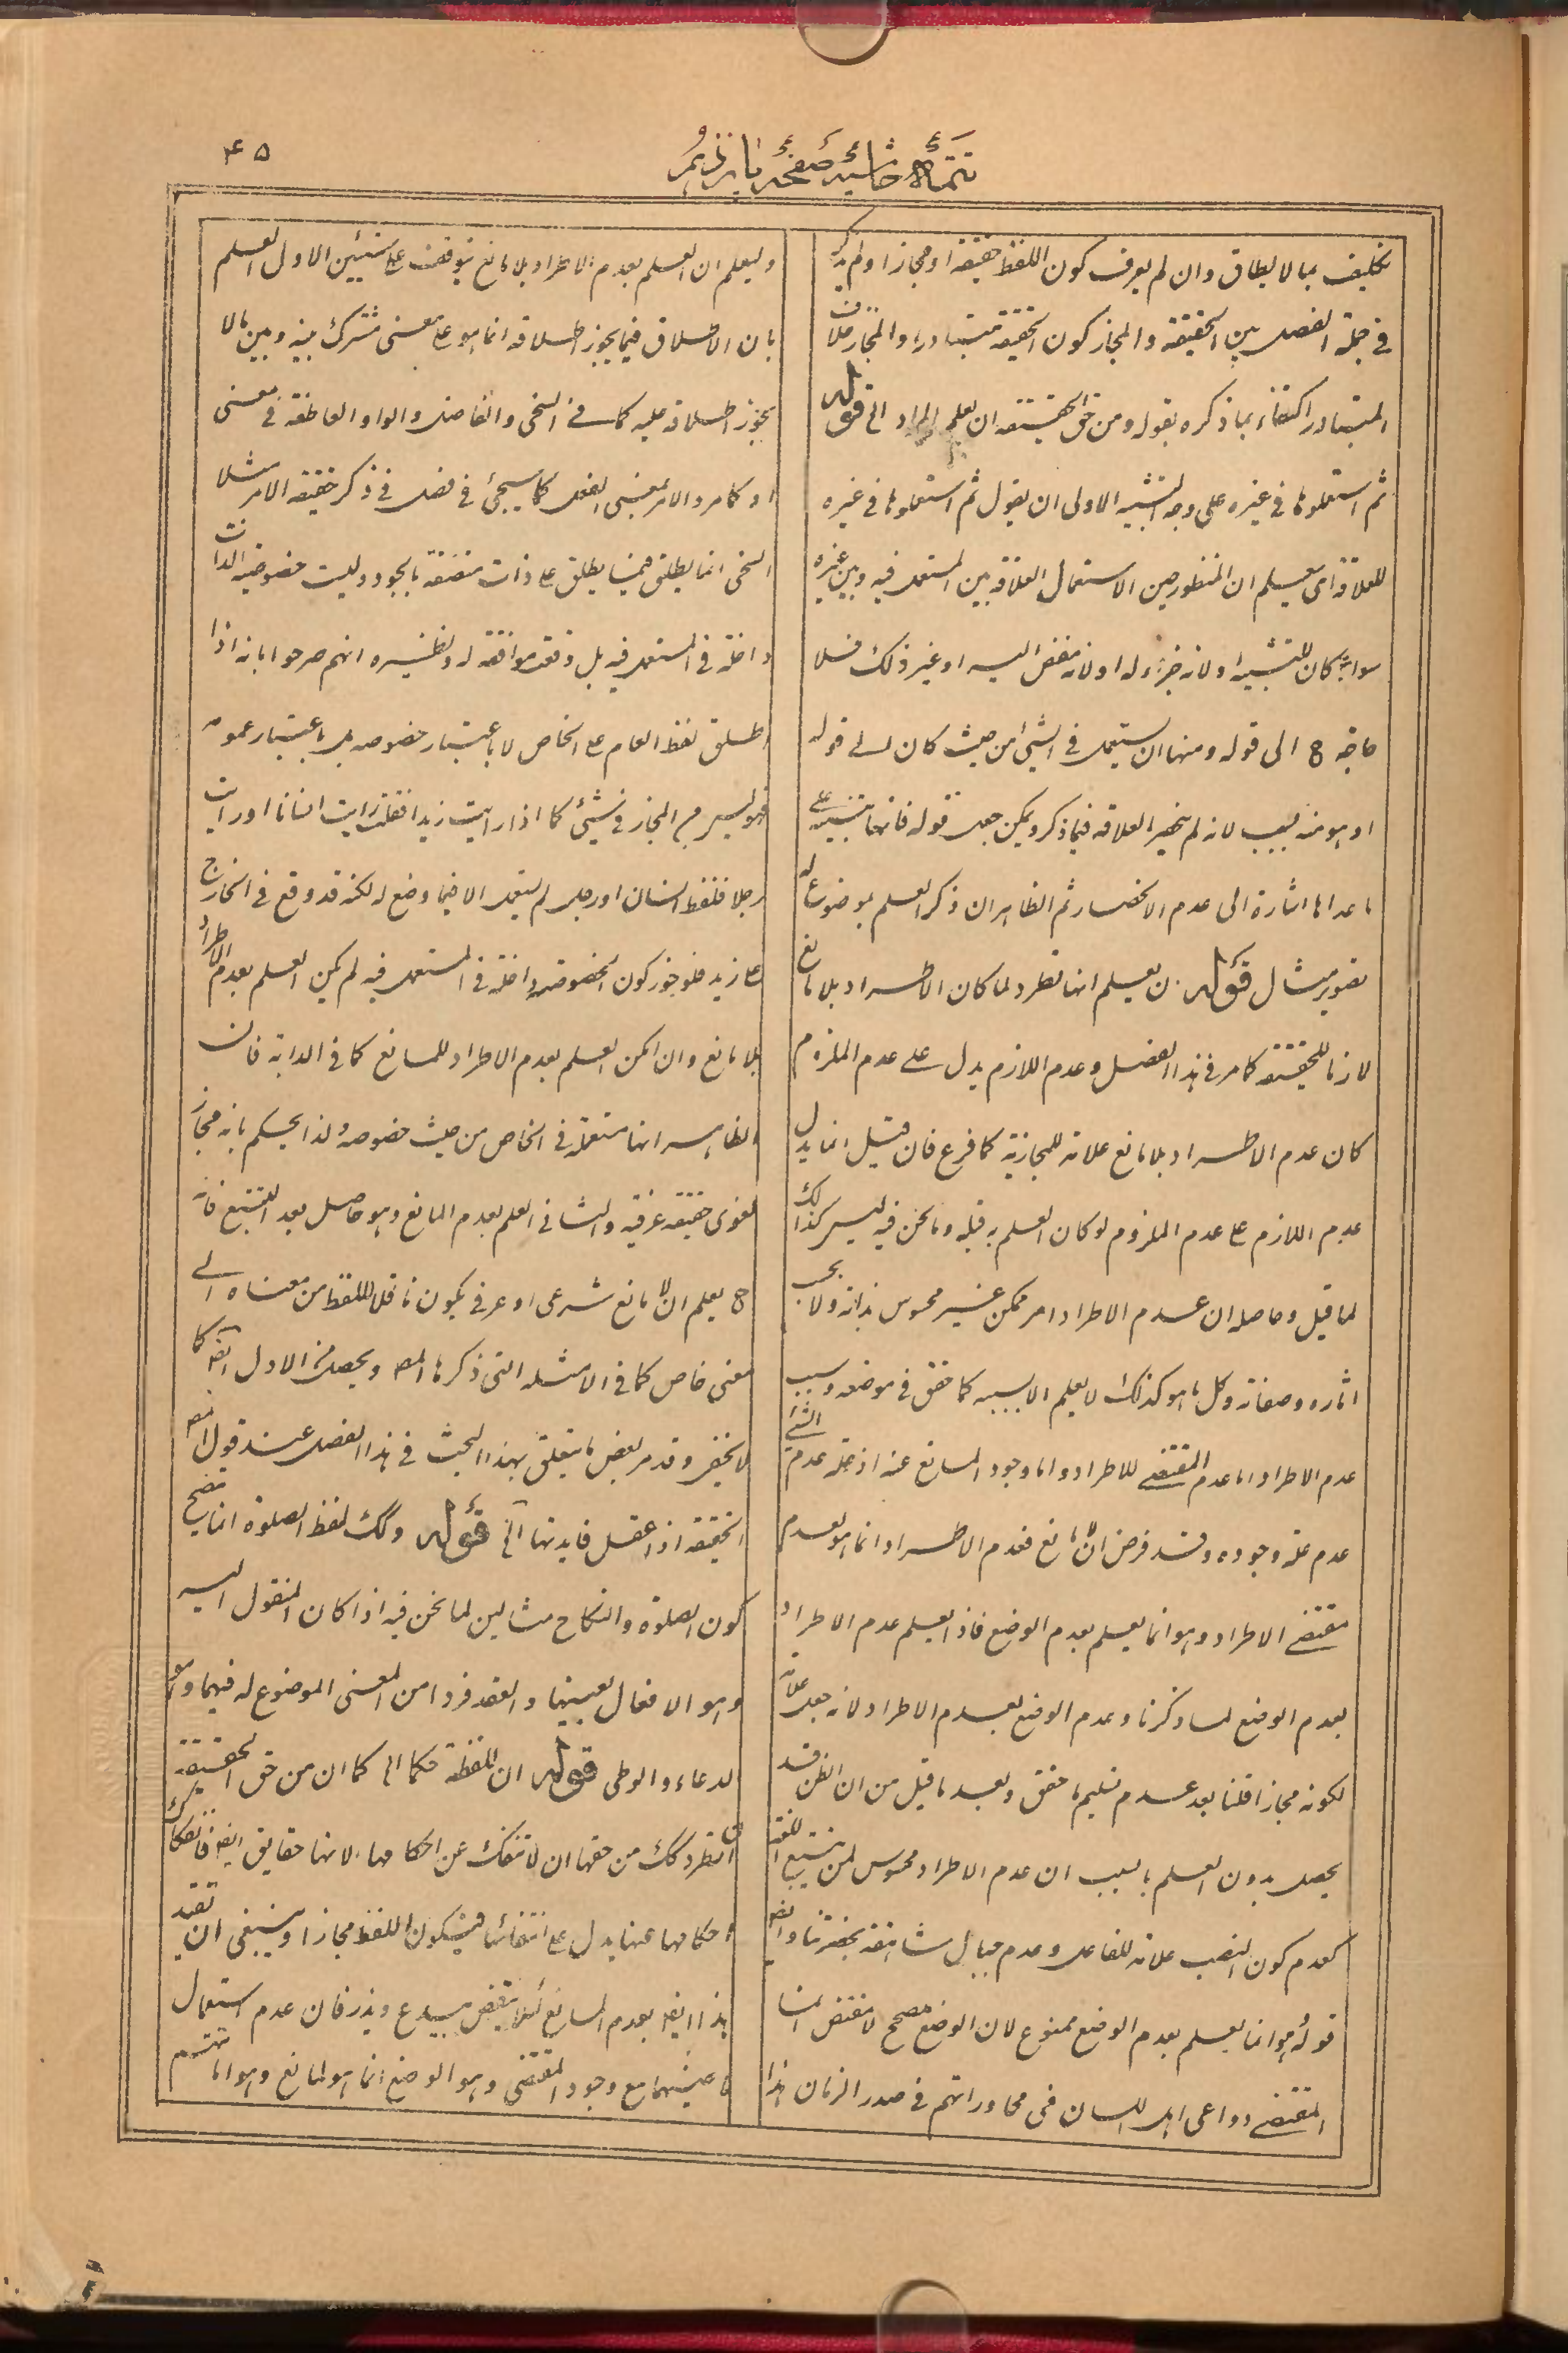 ۴۵
تتمّهٔ حاشیهٔ صفحهٔ پانزدهم
تكليف بما لا يطاق وان لم يعرف كون اللفظ حقيقة او مجازا ولم يذكر
فى جملة الفصل بين الحقيقة والمجاز كون الحقيقة متبادرا والمجاز خلاف
المتبادر اكتفاء بما ذكره بقوله ومن حق الحقيقة ان يعلم المراد الخ قوله
ثم استعملوها فى غيره على وجه التشبيه الاولى ان يقول ثم استعملوها فى غيره
للعلاقة اى يعلم ان المنظور حين الاستعمال العلاقة بين المستعمل فيه وبين غيره
سواء كان للتشبيه او لانه جزء له او لانه مفض اليه او غير ذلك فلا
حاجة ح الى قوله ومنها ان يستعمل فى الشيئ من حيث كان الى قوله
او هو منه بسبب لانه لم ينحصر العلاقة فيما ذكر ويمكن جعل قوله فانها تنبيه على
ما عداها اشارة الى عدم الانحصار ثم الظاهر ان ذكر العلم بموضوع له
تصوير مثال قوله ان يعلم انها تطرد لما كان الاطراد بلا مانع
لازما للحقيقة كما مر فى هذا الفصل وعدم اللازم يدل على عدم الملزوم
كان عدم الاطراد بلا مانع علامة للمجازية كما فرع فان قيل انما يدل
عدم اللازم على عدم الملزوم لو كان العلم به قبله وما نحن فيه ليس كذلك
لما قيل وحاصله ان عدم الاطراد امر ممكن غير محسوس بذاته ولا بحسب
اثاره وصفاته وكل ما هو كذلك لا يعلم الا بسببه كما حقق فى موضعه وسبب
عدم الاطراد اما عدم المقتضى للاطراد واما وجود المانع عنه اذ علة عدم الشئ
عدم علة وجوده وقد فرض ان لا مانع فعدم الاطراد انما هو لعدم
مقتضى الاطراد وهو انما يعلم بعدم الوضع فاذا يعلم عدم الاطراد
بعدم الوضع لما ذكرنا وعدم الوضع بعدم الاطراد لانه جعل علامة
لكونه مجازا قلنا بعد عدم تسليم ما حقق وبعد ما قيل من ان الظن قد
يحصل بدون العلم بالسبب ان عدم الاطراد محسوس لمن تتبع اللغة
كعدم كون النصب علامة للفاعل وعدم جبال شاهقة بحضرتنا وايضا
قوله وهو انما يعلم بعدم الوضع ممنوع لان الوضع مصحح لا مقتض انما
المقتضى دواعى اهل اللسان فى محاوراتهم فى صدر الزمان هذا
وليعلم ان العلم بعدم الاطراد بلا مانع يتوقف على شيئين الاول العلم
بان الاطلاق فيما يجوز اطلاقه انما هو على معنى مشترك بينه وبين ما لا
يجوز اطلاقه عليه كما فى السخى والفاضل والواو العاطفة فى معنى
او كما مر والامر بمعنى الفعل كما سيجئ فى فصل فى ذكر حقيقة الامر مثلا
السخى انما يطلق فيما يطلق على ذات متصفة بالجود وليست خصوصية الذات
داخلة فى المستعمل فيه بل وقعت موافقة له ونظيره انهم صرحوا بانه اذا
اطلق لفظ العام على الخاص لا باعتبار خصوصه بل باعتبار عمومه
فهو ليس من المجاز فى شئ كما اذا رايت زيدا فقلت رايت انسانا او رايت
رجلا فلفظ انسان او رجل لم يستعمل الا فيما وضع له لكنه قد وقع فى الخارج
على زيد فلو جوز كون الخصوصية داخلة فى المستعمل فيه لم يكن العلم بعدم الاطراد
بلا مانع وان امكن العلم بعدم الاطراد للمانع كما فى الدابة فان
الظاهر انها مستعملة فى الخاص من حيث خصوصه ولذا يحكم بانه مجاز
لغوى حقيقة عرفية والثانى العلم بعدم المانع وهو حاصل بعد التتبع فانه
ح يعلم ان لا مانع شرعى او عرفى يكون ناقلا للفظ من معناه الى
معنى خاص كما فى الامثلة التى ذكرها المص ويحصل من الاول ايضا كما
لا يخفى وقد مر بعض ما يتعلق بهذا البحث فى هذا الفصل عند قول المص
الحقيقة اذا عقل فايدتها الخ قوله وكك لفظ الصلوة انما يصح
كون الصلوة والنكاح مثالين لما نحن فيه اذا كان المنقول اليه
وهو الافعال بعينها والعقد فردا من المعنى الموضوع له فيهما وهو
الدعاء والوطى قوله ان للفظة حكما الخ كما ان من حق الحقيقة
ان تطرد كك من حقها ان لا تنفك عن احكامها لانها حقايق ايضا فانفكاك
احكامها عنها يدل على انتفائها فيكون اللفظ مجازا وينبغى ان يقيد
هذا ايضا بعدم المانع لئلا ينتقض بيدع ويذر فان عدم استعمال
ماضيهما مع وجود المقتضى وهو الوضع انما هو لمانع وهو اماتتهم